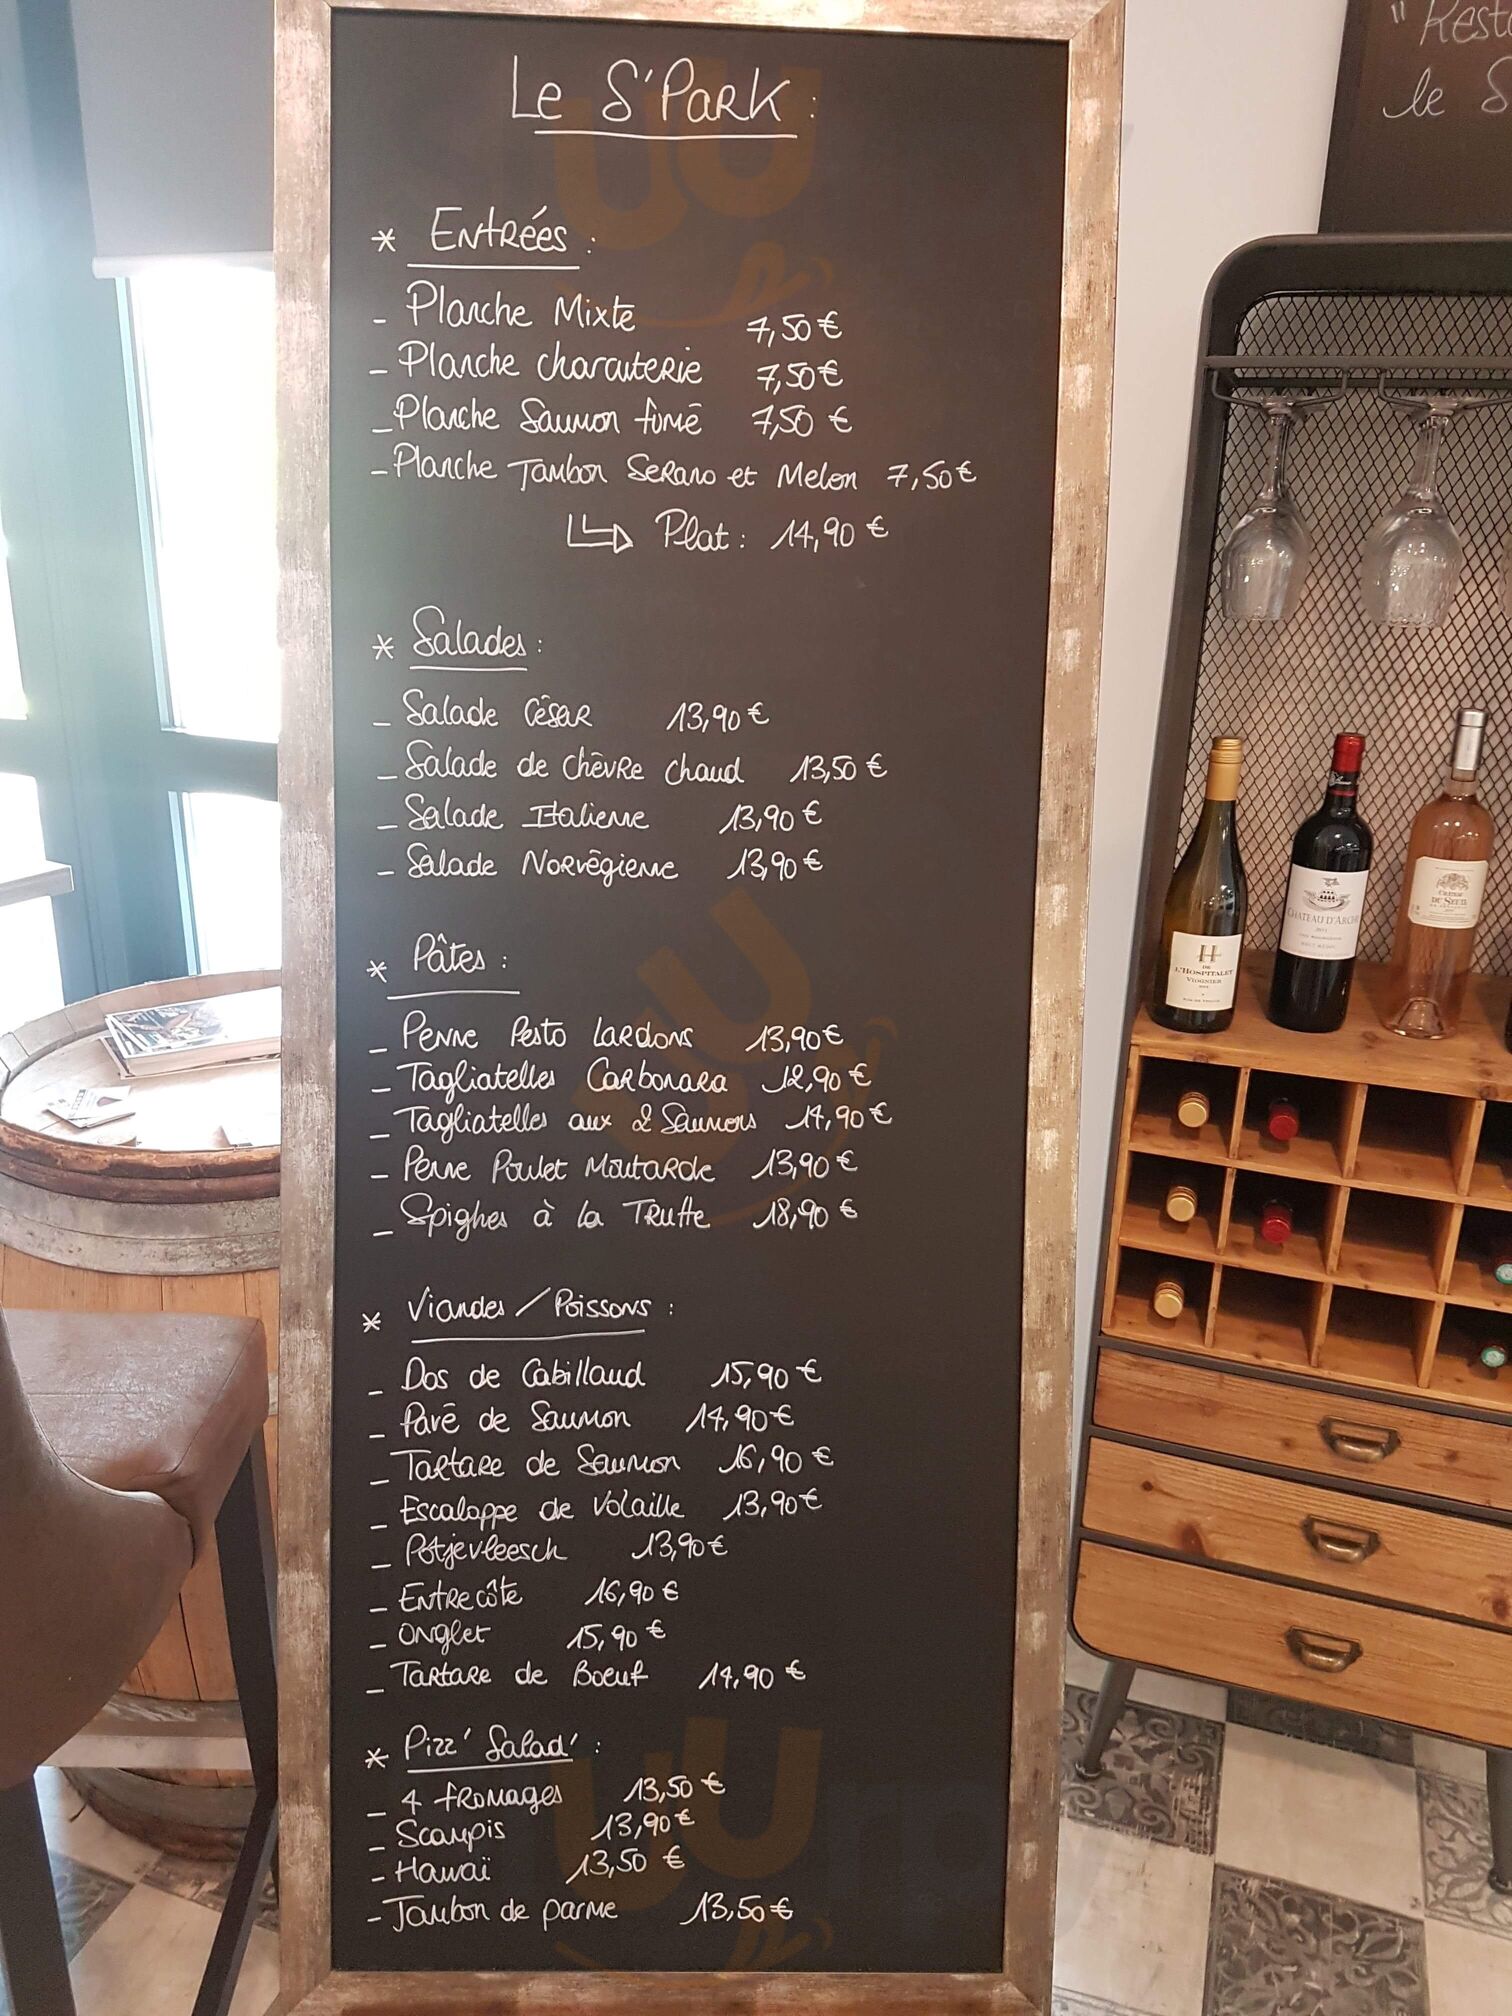 Le S'Park :
* Entrées :
- Planche Mixte 7,50 €
- Planche charcuterie 7,50 €
- Planche Saumon fumé 7,50 €
- Planche Jambon Serano et Melon 7,50 €
Plat : 14,90 €
* Salades :
- Salade César 13,90 €
- Salade de chèvre chaud 13,50 €
- Salade Italienne 13,90 €
- Salade Norvégienne 13,90 €
* Pâtes :
- Penne Pesto Lardons 13,90 €
- Tagliatelles Carbonara 12,90 €
- Tagliatelles aux 2 Saumons 14,90 €
- Penne Poulet Moutarde 13,90 €
- Spighes à la Truffe 18,90 €
* Viandes / Poissons :
- Dos de Cabillaud 15,90 €
- Pavé de Saumon 14,90 €
- Tartare de Saumon 16,90 €
- Escaloppe de Volaille 13,90 €
- Potjevleesch 13,90 €
- Entrecôte 16,90 €
- Onglet 15,90 €
- Tartare de Boeuf 14,90 €
* Pizz' Salad' :
- 4 fromages 13,50 €
- Scampis 13,90 €
- Hawaï 13,50 €
- Jambon de parme 13,50 €
"Resto
le S
H
DE
L'HOSPITALET
VIOGNIER
CHATEAU D'ARCHE
2011
HAUT-MÉDOC
DU SEUIL